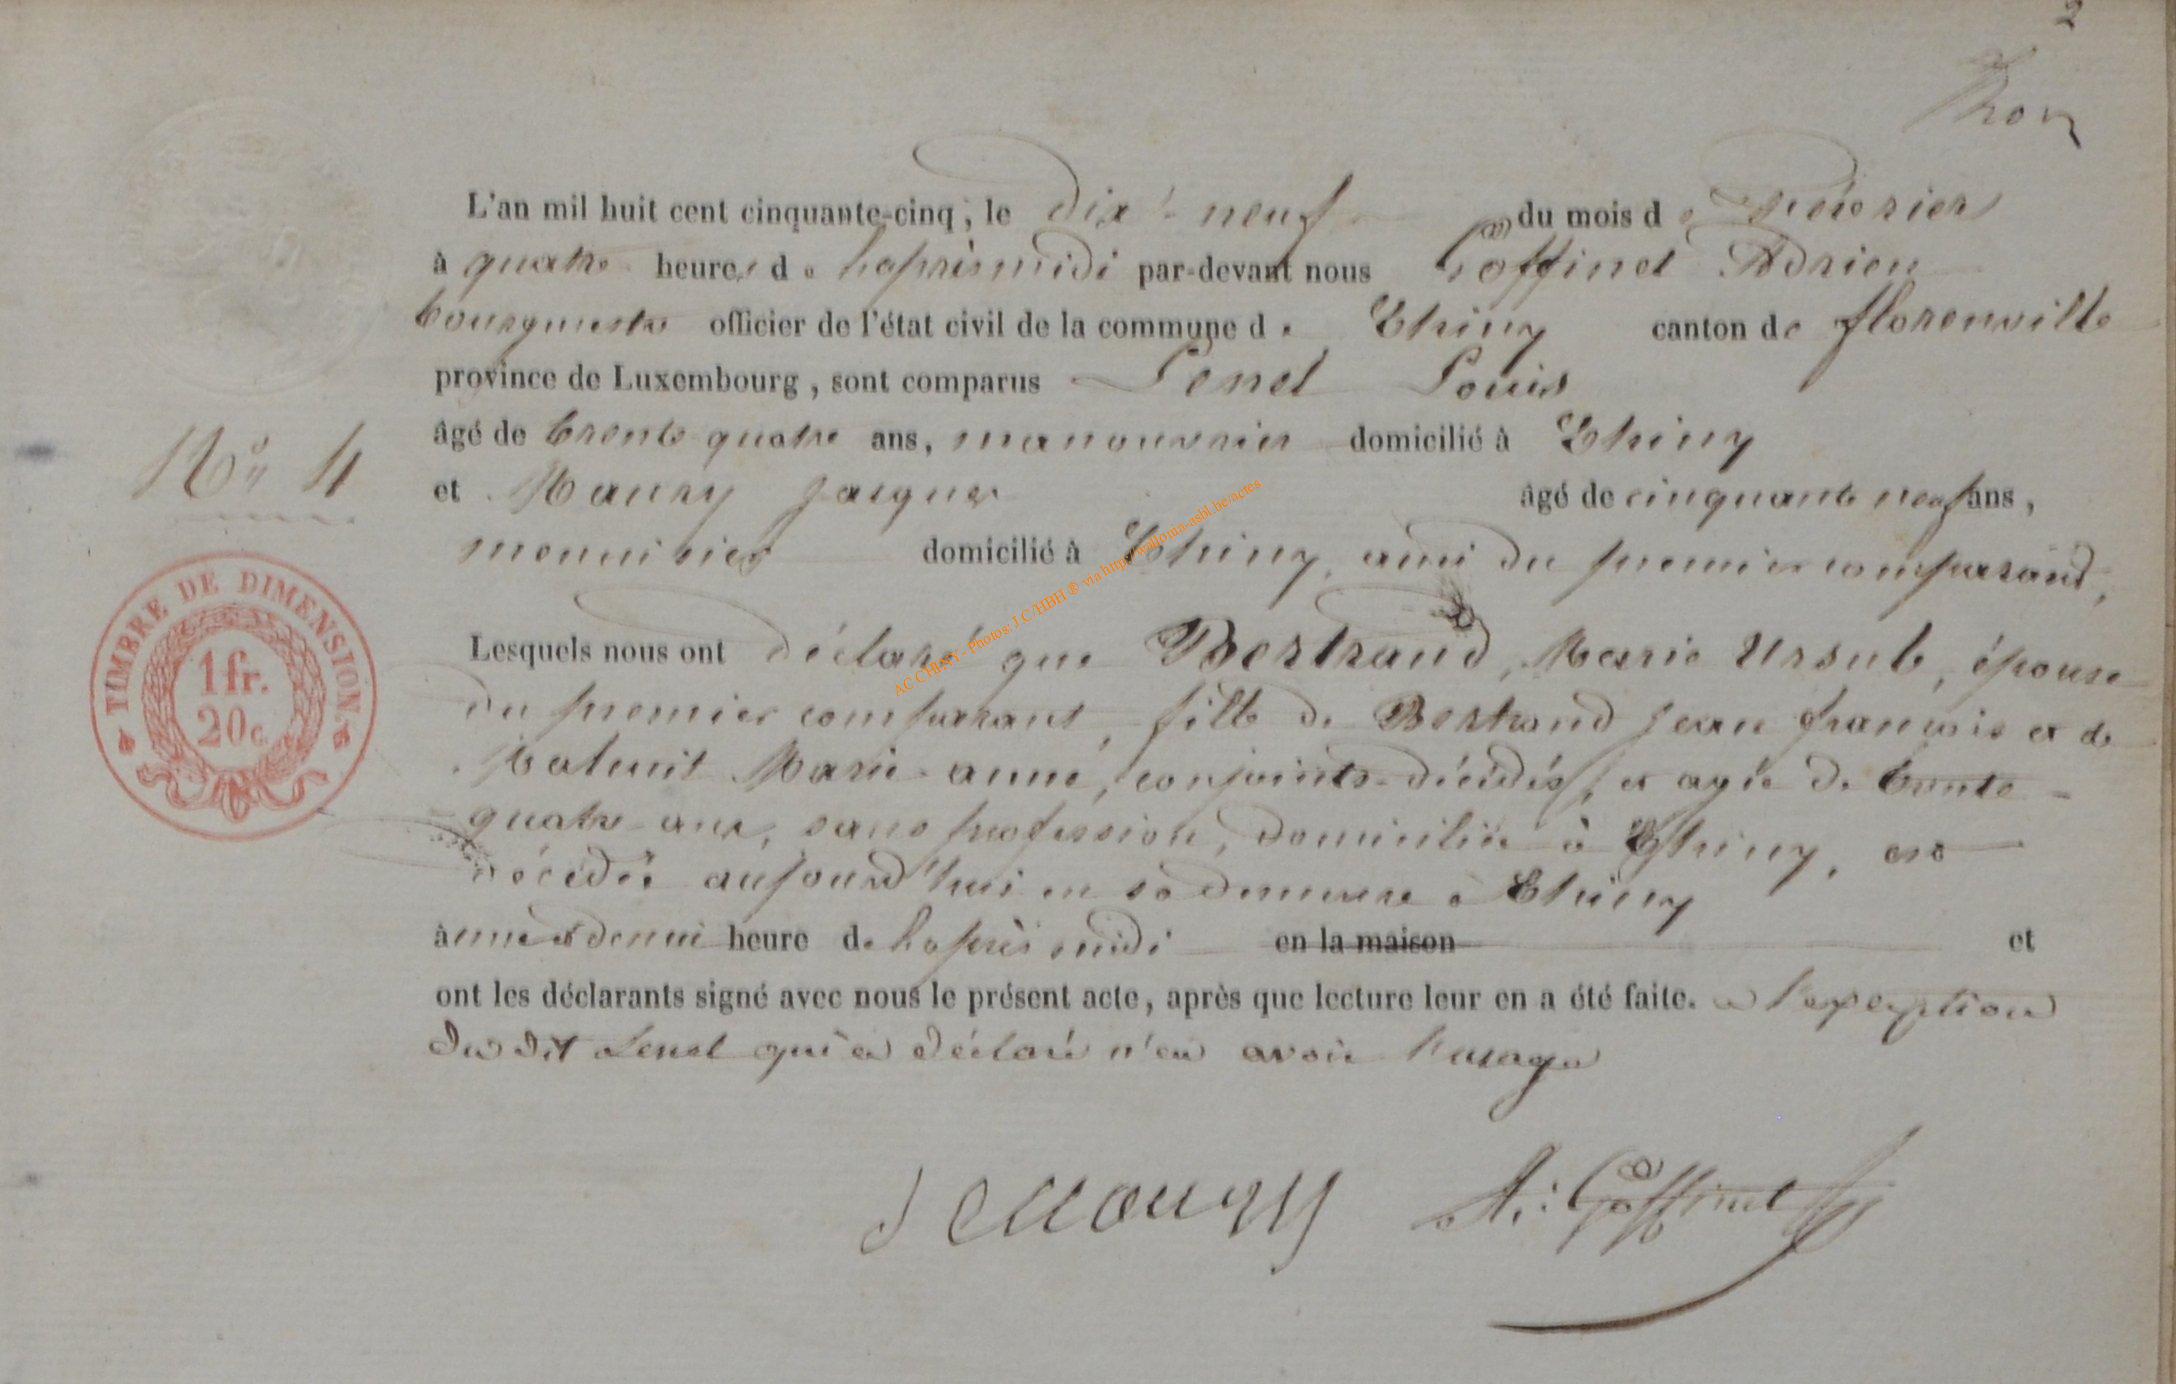 2
N° 4
TIMBRE DE DIMENSION
1 fr.
20 c.
L'an mil huit cent cinquante-cinq, le dix-neuf du mois de février
à quatre heures de l'aprèsmidi par-devant nous Goffinet Adrien
bourgmestre officier de l'état civil de la commune de Chiny canton de florenville
province de Luxembourg, sont comparus Lenel Louis
âgé de trente quatre ans, manouvrier domicilié à Chiny
et Maury Jacques âgé de cinquante neuf ans,
menuisier domicilié à Chiny, ami du premier comparant,
Lesquels nous ont déclaré que Bertrand, Marie Ursule, épouse
du premier comparant, fille de Bertrand Jean françois et de
Marie-anne, conjoints-décédés, et agée de trente-
quatre ans, sans profession, domiciliée à Chiny, est
décédée aujourd'hui en sa demeure à Chiny
à une et demie heure de l'après midi en la maison et
ont les déclarants signé avec nous le présent acte, après que lecture leur en a été faite. a l'exeption
du dit Lenel qui a déclaré n'en avoir l'usage
A. Goffinet
AC CHINY - Photos: J.C./HBH ® via http://wallonia-asbl.be/actes